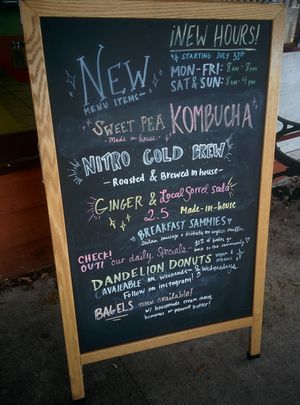 ¡NEW HOURS!
STARTING JULY 31ST
MON-FRI: 8am-8pm
SAT & SUN: 8am-4pm
NEW
MENU ITEMS~
SWEET PEA KOMBUCHA
- Made in house -
NITRO COLD BREW
- Roasted & Brewed In house -
GINGER & Local Sorrel Soda
2.5 Made-in-house
BREAKFAST SAMMIES
Italian sausage + frittata on english muffin
CHECK OUT! our daily Specials-
back to the community
DANDELION DONUTS
Vegan
organic
AVAILABLE on weekends & Wednesdays
Follow on instagram!
BAGELS now available!
w/ housemade cream cheese,
hummus or peanut butter!